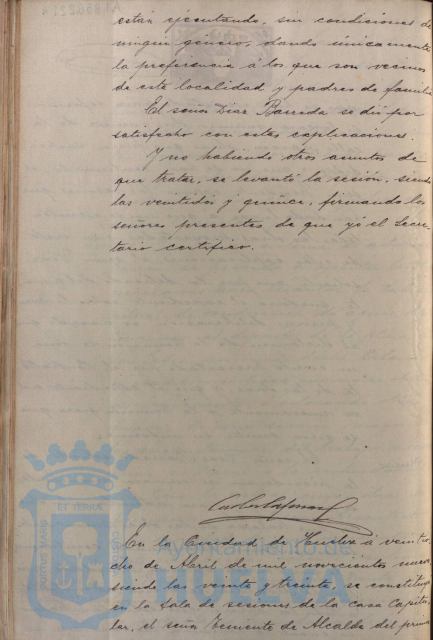 están ejecutando, sin condiciones de
ningún género, dando únicamente
la preferencia á los que son vecinos
de esta localidad y padres de familia
El señor Diaz Barreda se dió por
satisfecho con estas explicaciones.
Y no habiendo otros asuntos de
que tratar, se levantó la sesión, siendo
las veintidos y quince, firmando los
señores presentes de que yó el Secre-
tario certifico.
En la Ciudad de Huelva á veinti-
ocho de Abril de mil novecientos nueve
siendo las veinte y treinta, se constituyó
en la Sala de sesiones de la casa Capitu-
lar, el señor Teniente de Alcalde del primer
Ayuntamiento de
HUELVA